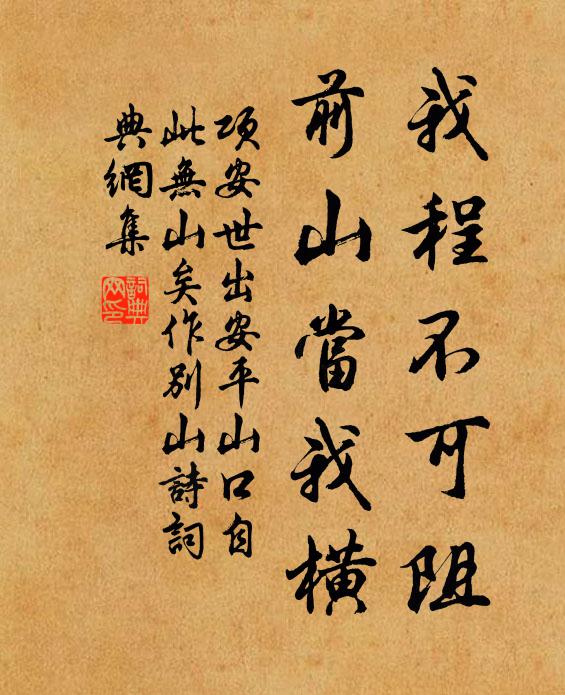 我程不可阻
前山當我橫
項安世出安平山口自
此無山矣作別山詩詞
典網集
詞典
网印